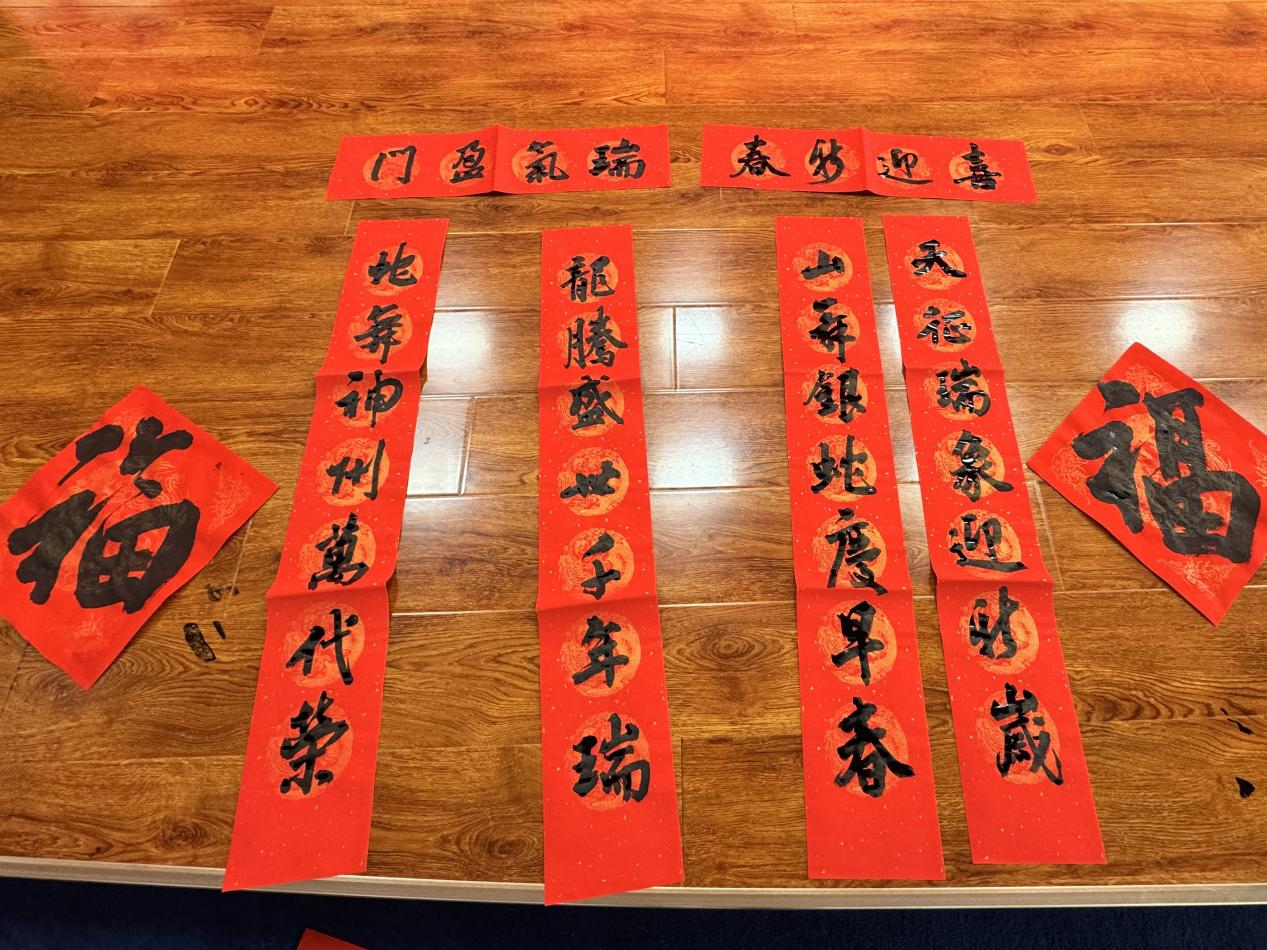 喜迎新春
瑞氣盈门
天征瑞象迎新歲
山舞銀蛇慶早春
龍騰盛世千年瑞
蛇舞神州萬代榮
福
福